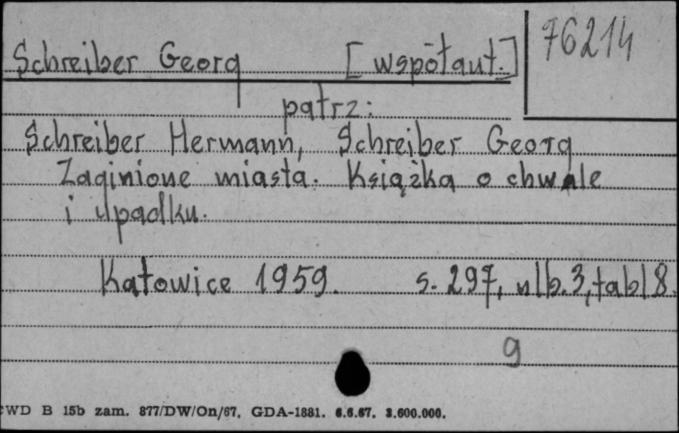 76214
Schreiber Georg [współaut.]
patrz:
Schreiber Hermann, Schreiber Georg
Zaginione miasta. Książka o chwale
i upadku.
Katowice 1959. s. 297, nlb. 3, tabl 8.
9
CWD B 15b zam. 877/DW/On/67. GDA-1881. 6.6.67. 3.600.000.